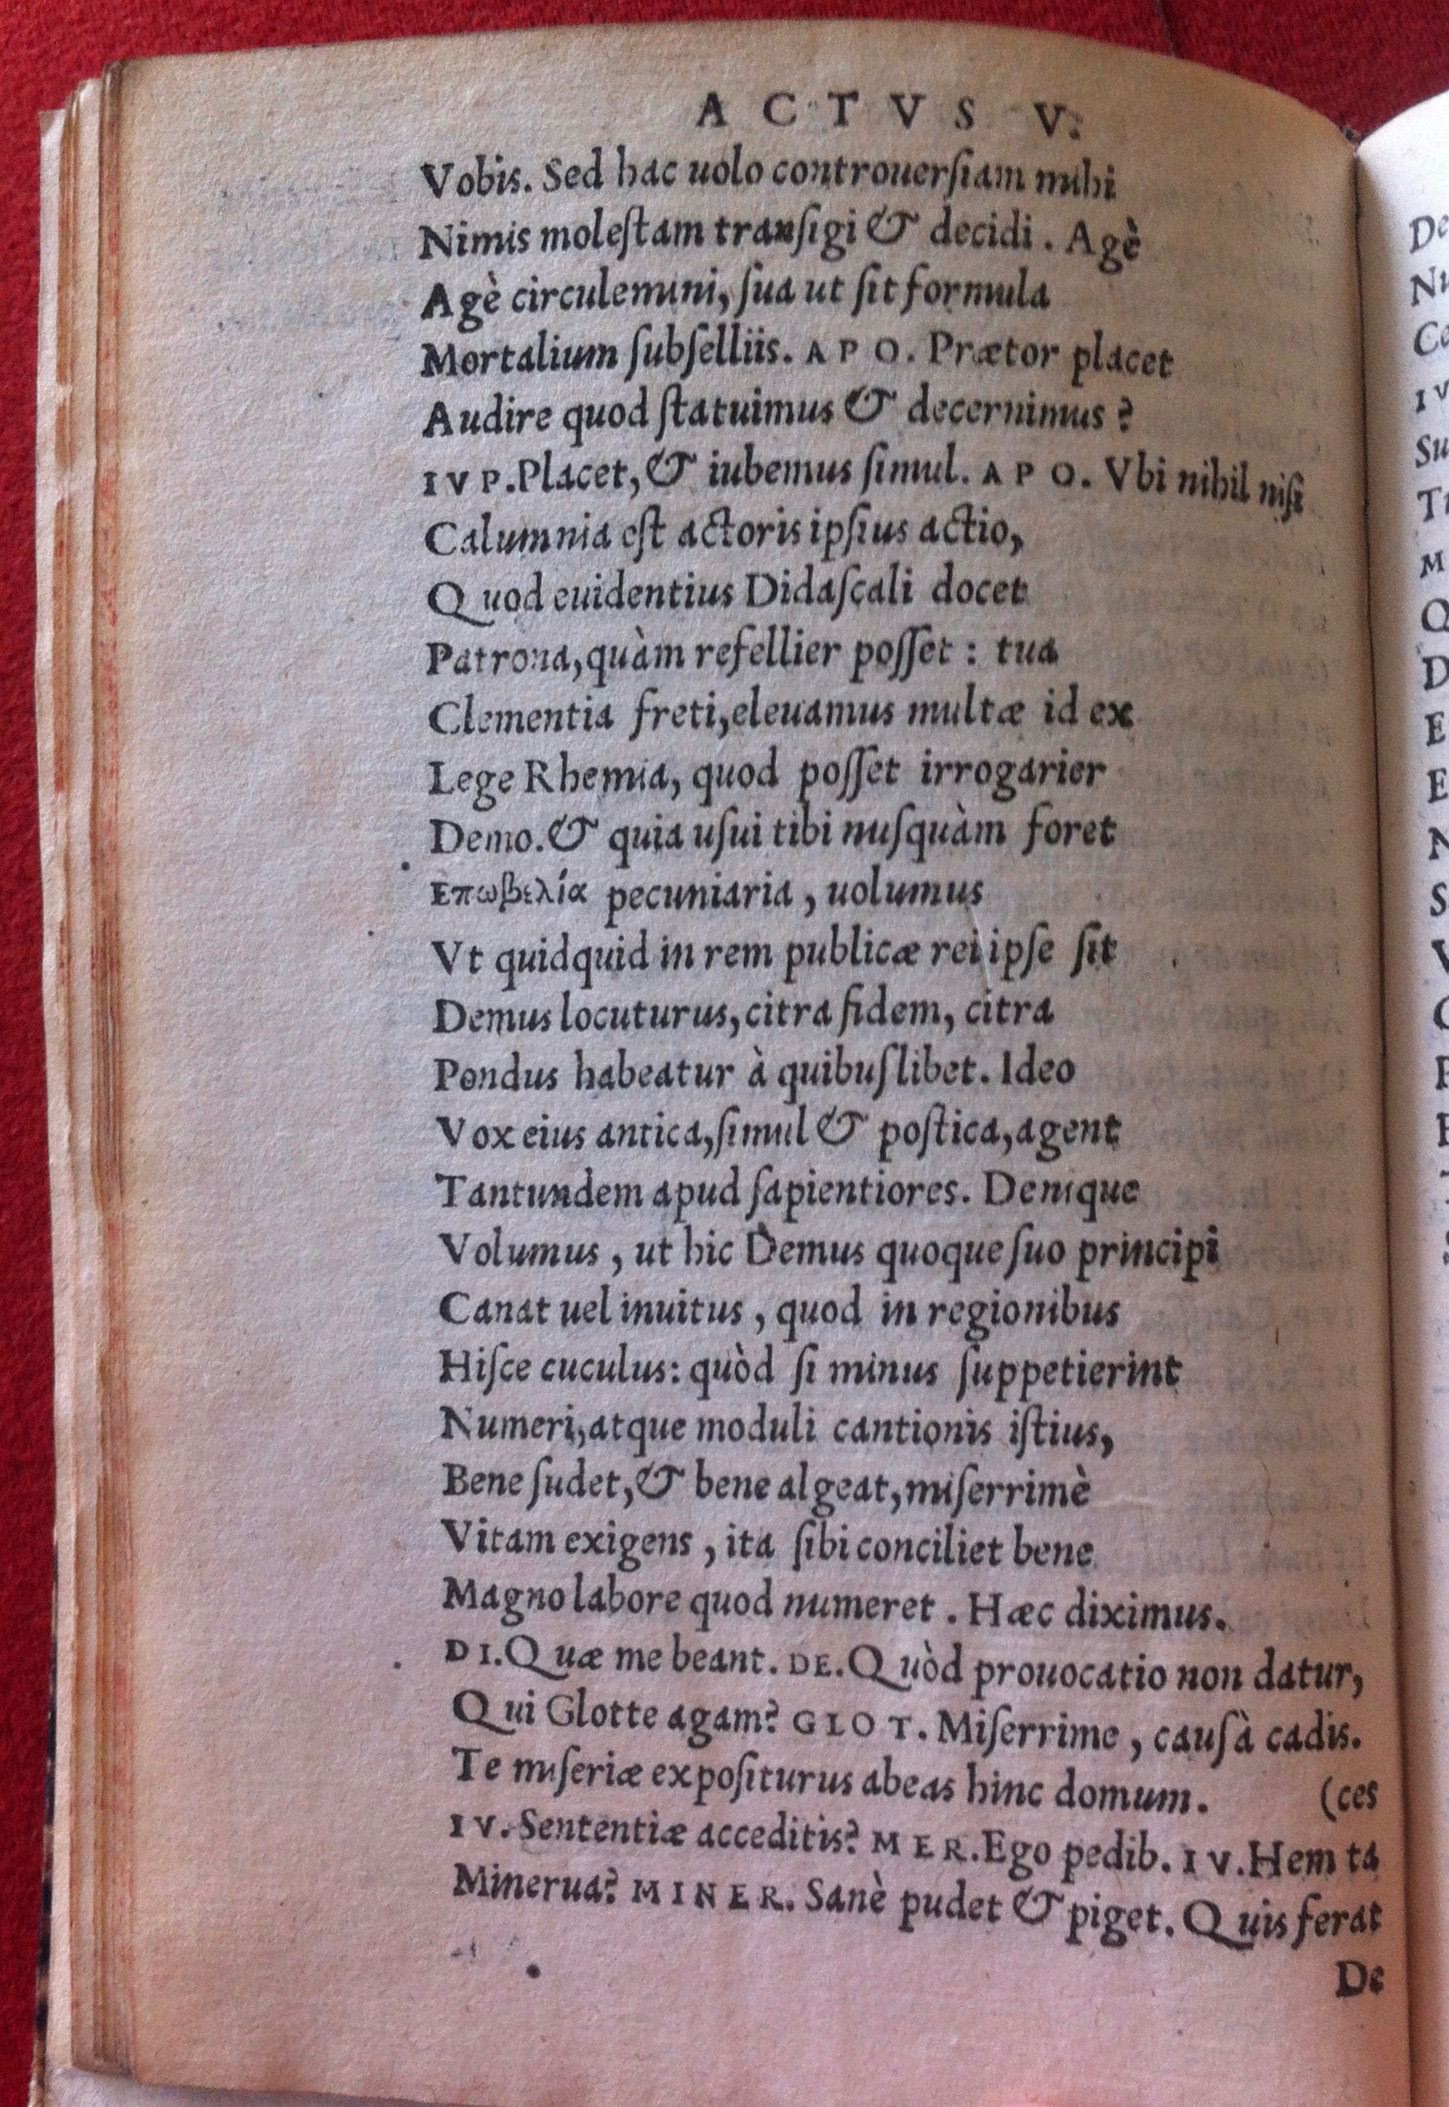 ACTVS V.
Vobis. Sed hac uolo controuerſiam mihi
Nimis moleſtam tranſigi & decidi. Agè
Agè circulemini, ſua ut ſit formula
Mortalium ſubſelliis. APO. Prætor placet
Audire quod ſtatuimus & decernimus?
IVP. Placet, & iubemus ſimul. APO. Vbi nihil niſi
Calumnia eſt actoris ipſius actio,
Quod euidentius Didaſcali docet
Patrona, quàm refellier poſſet: tua
Clementia freti, eleuamus multæ id ex
Lege Rhemia, quod poſſet irrogarier
Demo. & quia uſui tibi nuſquàm foret
Επωβελία pecuniaria, uolumus
Vt quidquid in rem publicæ rei ipſe ſit
Demus locuturus, citra fidem, citra
Pondus habeatur à quibuſlibet. Ideo
Vox eius antica, ſimul & poſtica, agent
Tantundem apud ſapientiores. Denique
Volumus, ut hic Demus quoque ſuo principi
Canat uel inuitus, quod in regionibus
Hiſce cuculus: quòd ſi minus ſuppetierint
Numeri, atque moduli cantionis iſtius,
Bene ſudet, & bene algeat, miſerrimè
Vitam exigens, ita ſibi conciliet bene
Magno labore quod numeret. Hæc diximus.
DI. Quæ me beant. DE. Quòd prouocatio non datur,
Qui Glotte agam? GLOT. Miſerrime, cauſà cadis.
Te miſeriæ expoſiturus abeas hinc domum. (ces
IV. Sententiæ acceditis? MER. Ego pedib. IV. Hem ta
Minerua? MINER. Sanè pudet & piget. Quis ferat
De